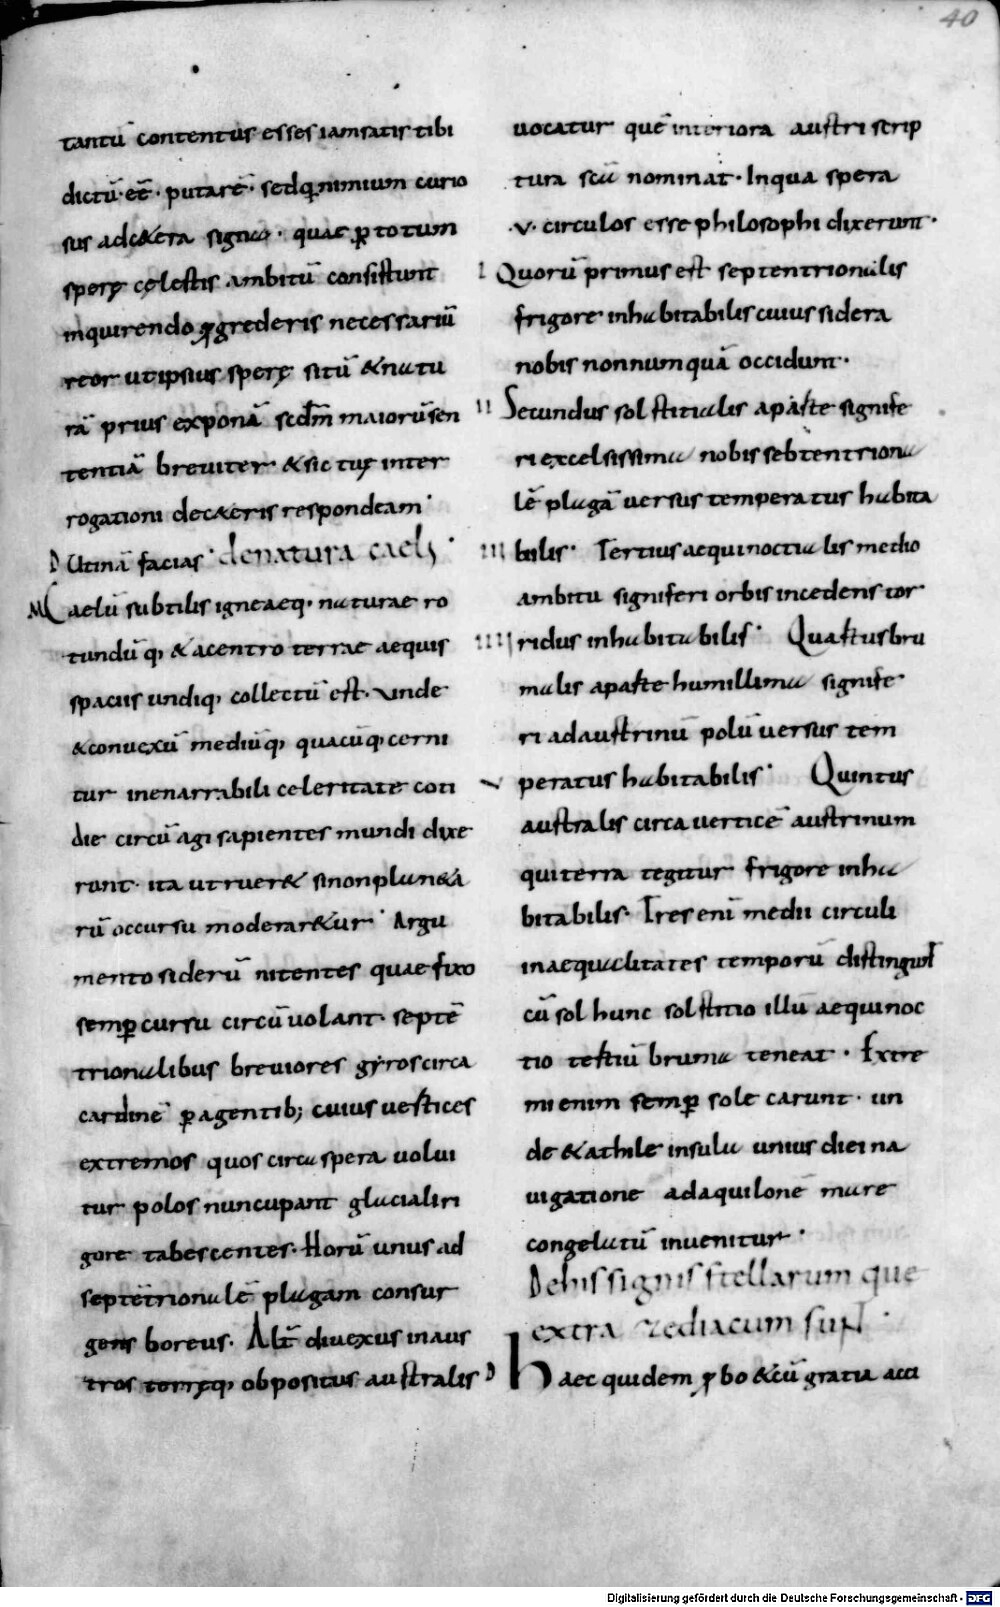 40
tantū contentus esses iam satis tibi
dictū·eē· putarē· sed q̄ nimium curio
sus ad c&era signa· quae ꝑ totum
sperę cęlestis ambitū consistunt
inquirendo ꝓgrederis necessariū
reor ut ipsius sperę sitū & natu
rā prius exponā scdm̄ maiorū sen
tentiā breuiter· & sic tuę inter
rogationi de c&eris respondeam·
D Utinā facias· de natura caeli·
M Caelū subtilis igneaeq· naturae ro
tundū q, & a centro terrae aequis
spaciis undiq, collectū est· unde
& conuexū mediūq, quacūq, cerni
tur inenarrabili celeritate coti
die circū agi sapientes mundi dixe
runt· ita ut ruer& si non plan&a
rū occursu moderar&ur· Argu
mento siderū nitentes quae fixo
semꝑ cursu circū uolant· septē
trionalibus breuiores gẏros circa
cardinē ꝑagentib; cuius uertices
extremos quos circa spera uolui
tur polos nuncupant glaciali ri
gore tabescentes· Horū unus ad
septētrionalē plagam consur
gens boreus· Alt̄ diuexus in aus
tros terręq, obpositus australis
uocatur quē interiora austri scrip
tura scā nominat· In qua spera
·v· circulos esse philosophi dixerunt·
I Quorū primus est septentrionalis
frigore inhabitabilis cuius sidera
nobis nonnumquā occidunt·
II Secundus solstitialis a parte signife
ri excelsissima nobis sebtentriona
lē plagā uersus temperatus habita
III bilis· Tertius aequinoctialis medio
ambitu signiferi orbis incedens tor
IIII ridus inhabitabilis· Quartus bru
malis a parte humillima signife
ri ad austrinū polū uersus tem
V peratus habitabilis· Quintus
australis circa uerticē austrinum
qui terra tegitur frigore inha
bitabilis· Tres enī medii circuli
inaequalitates temporū distingut̄
cū sol hunc solstitio illū aequinoc
tio tertiū bruma teneat· Extre
mi enim semꝑ sole carunt· un
de & a thile insula unius diei na
uigatione ad aquilonē mare
congelatū inuenitur·
De his signis stellarum que
extra zediacum sun̄t·
D Haec quidem ꝓbo & cū gratia acci
Digitalisierung gefördert durch die Deutsche Forschungsgemeinschaft - DFG